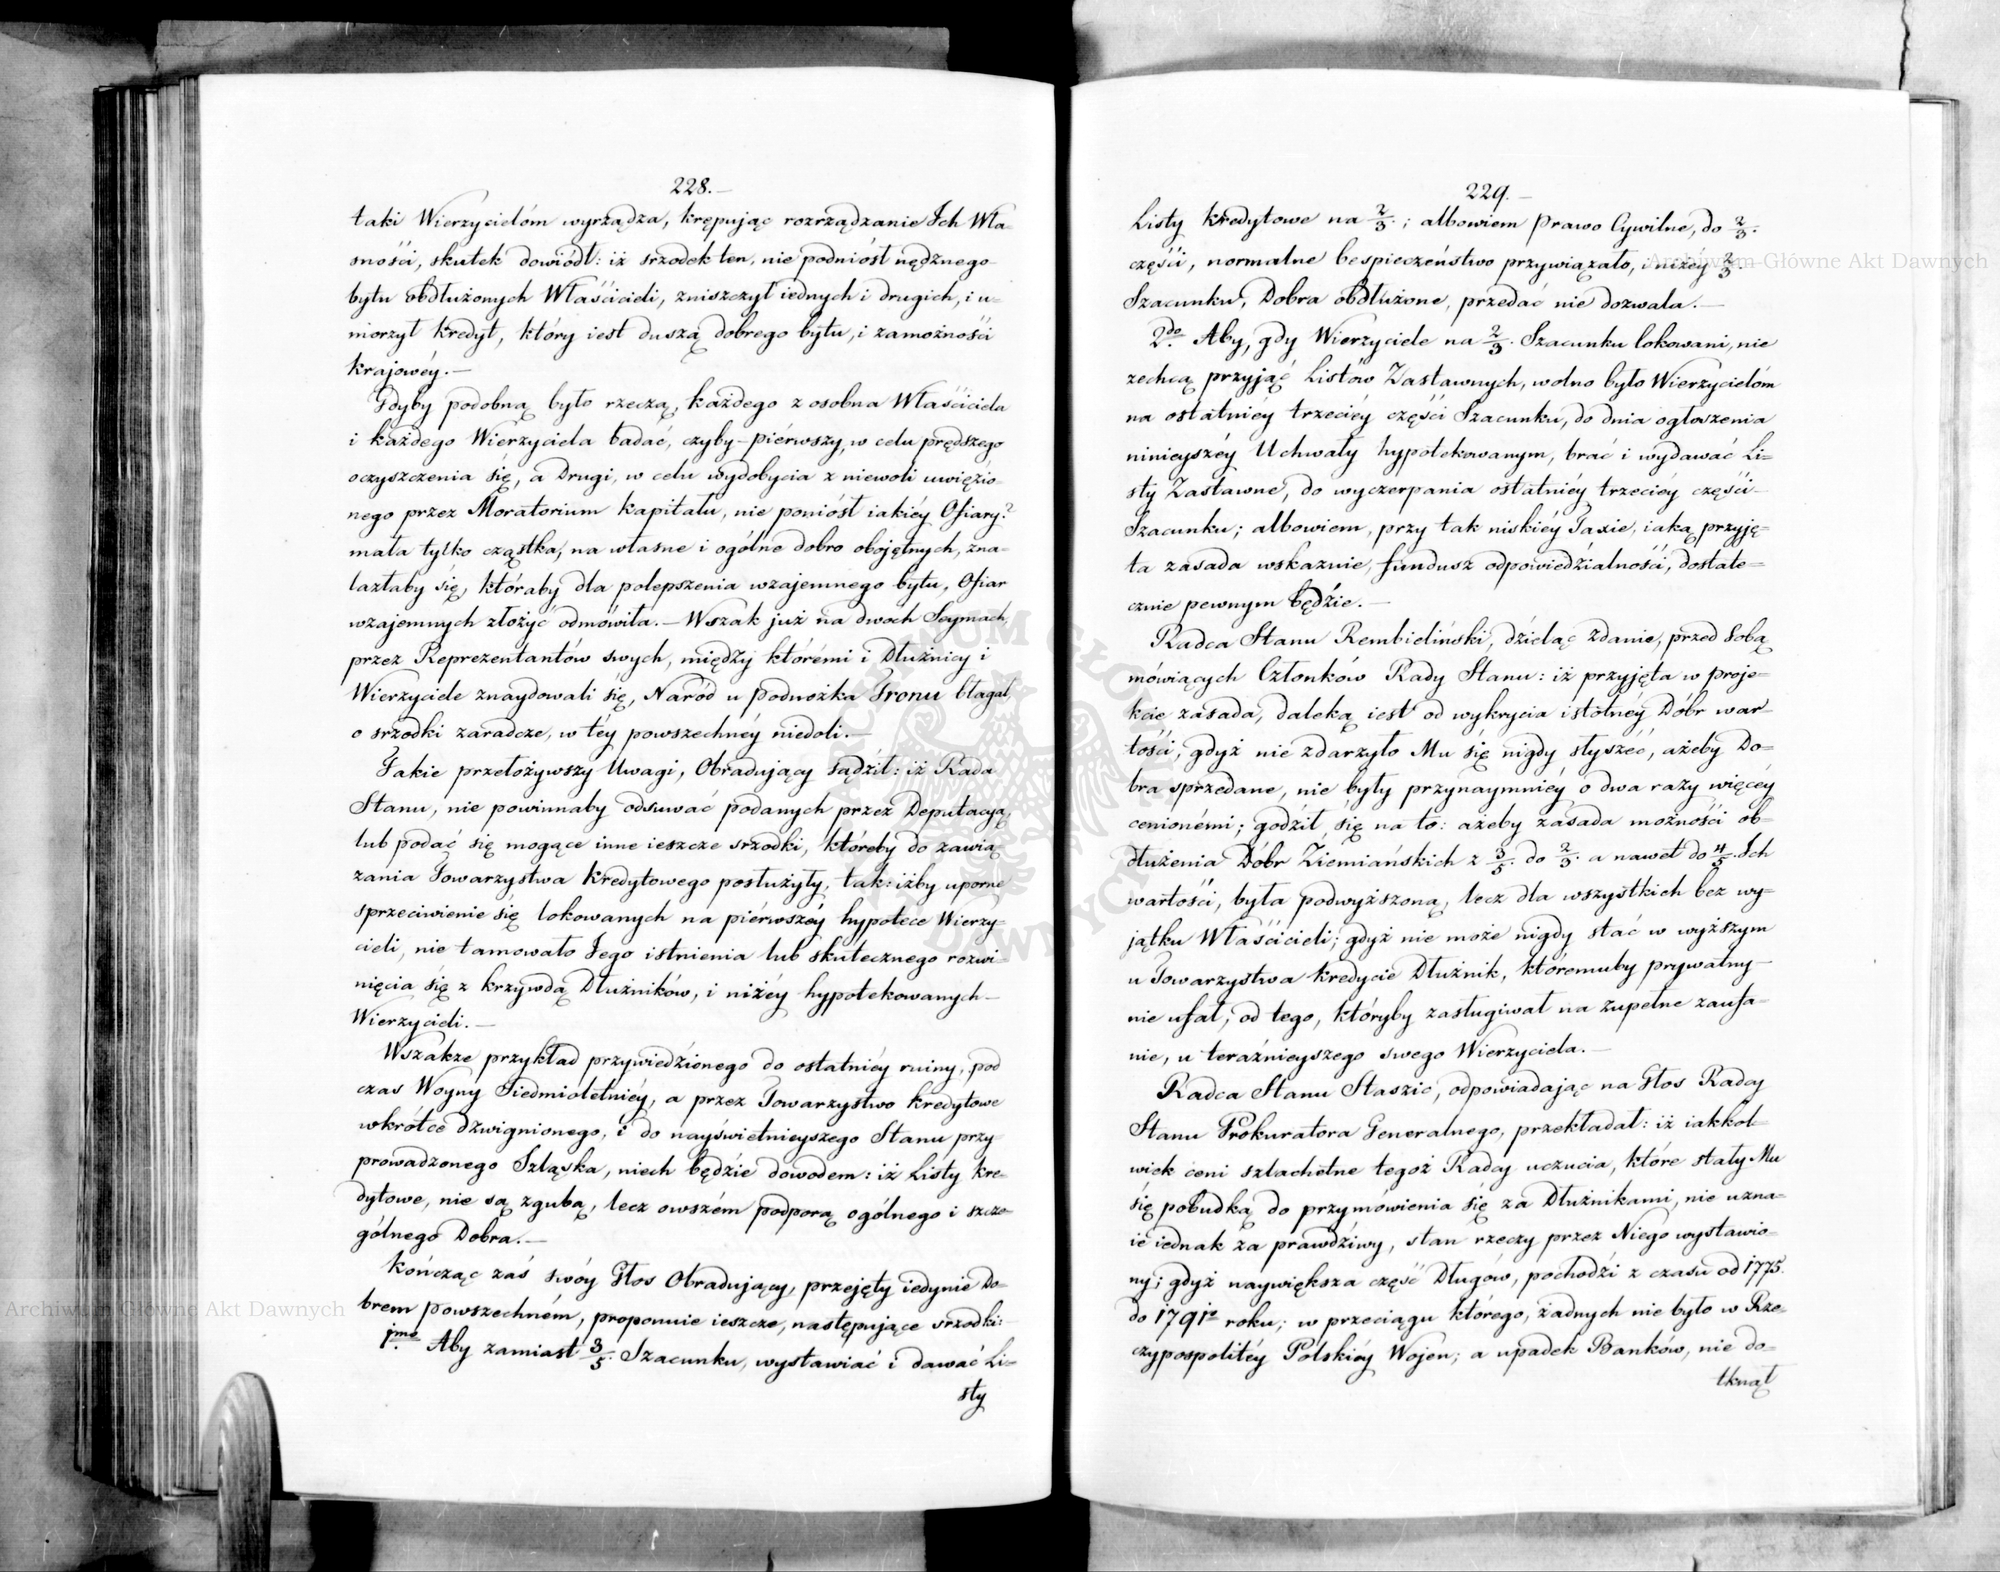 228.—
taki Wierzycielóm wyrządza, krępując rozrządzanie Ich Wła-
sności, skutek dowiódł: iż srzodek ten, nie podniósł nędznego
bytu obdłużonych Właścicieli, zniszczył iednych i drugich, i u-
morzył kredyt, który iest duszą dobrego bytu, i zamożności
krajowéy.—
Gdyby podobną było rzeczą, każdego z osobna Właściciela
i każdego Wierzyciela badać, czyby – piérwszy, w celu prędszego
oczyszczenia się, a Drugi, w celu wydobycia z niewoli uwięzio-
nego przez Moratorium kapitału, nie poniósł iakiéy Ofiary?
mała tylko cząstka, na własne i ogólne dobro obojętnych, zna-
lazłaby się, któraby dla polepszenia wzajemnego bytu, Ofiar
wzajemnych złożyć odmówiła.— Wszak już na dwoch Seymach,
przez Reprezentantów swych, między którémi i Dłużnicy i
Wierzyciele znaydowali się, Naród u podnożka Tronu błagał,
o srzodki zaradcze, w téy powszechnéy niedoli.—
Takie przełożywszy Uwagi, Obradujący sądził: iż Rada
Stanu, nie powinnaby odsuwać podanych przez Deputacyą,
lub podać się mogące inne ieszcze srzodki, któreby do zawią-
zania Towarzystwa kredytowego posłużyły, tak: iżby uporne
sprzeciwienie się lokowanych na piérwszéy hypotece Wierzy-
cieli, nie tamowało Jego istnienia lub skutecznego rozwi-
nięcia się z krzywdą Dłużników, i niżéy hypotekowanych—
Wierzycieli.—
Wszakże przykład przywiedzionego do ostatniéy ruiny, pod
czas Woyny Siedmioletniéy, a przez Towarzystwo kredytowe
wkrótce dzwignionego, i do nayświetnieyszego Stanu przy-
prowadzonego Szląska, niech będzie dowodem: iż Listy kre-
dytowe, nie są zgubą, lecz owszém podporą ogólnego i szcze-
gólnego Dobra.—
Kończąc zaś swóy Głos Obradujący, przejęty iedynie Do-
brem powszechném, proponuie ieszcze, następujące srzodki:—
1mo. Aby zamiast 3/5. Szacunku, wystawiać i dawać Li-
sty
229.—
Listy kredytowe na 2/3.; albowiem Prawo Cywilne, do 2/3.
części, normalne bespieczeństwo przywiązało, i niżéy 2/3.
Szacunku, Dobra obdłużone, przedać nie dozwala.—
2do. Aby, gdy Wierzyciele na 2/3. Szacunku lokowani, nie
zechcą przyjąć Listów Zastawnych, wolno było Wierzycielóm
na ostatniéy trzeciéy części Szacunku, do dnia ogłoszenia
ninieyszéy Uchwały hypotekowanym, brać i wydawać Li-
sty Zastawne, do wyczerpania ostatniéy trzeciéy części—
Szacunku; albowiem, przy tak niskiéy Taxie, iaką przyję-
ta zasada wskazuie, fundusz odpowiedzialności, dostate-
cznie pewnym będzie.—
Radca Stanu Rembieliński, dzieląc zdanie, przed Sobą
mówiących Członków Rady Stanu: iż przyjęta w proje-
kcie zasada, daleką iest od wykrycia istotnéy Dóbr war-
tości, gdyż nie zdarzyło Mu się nigdy słyszeć, ażeby Do-
bra sprzedane, nie były przynaymniéy o dwa razy więcéy
cenionémi; godził się na to: ażeby zasada możności ob-
dłużenia Dóbr Ziemiańskich z 3/5. do 2/3. a nawet do 4/5. Ich
wartości, była podwyższoną, lecz dla wszystkich bez wy-
jątku Właścicieli; gdyż nie może nigdy stać w wyższym
u Towarzystwa kredycie Dłużnik, któremuby prywatny—
nie ufał, od tego, któryby zasługiwał na zupełne zaufa-
nie, u teraźnieyszego swego Wierzyciela.—
Radca Stanu Staszic, odpowiadając na Głos Radcy
Stanu Prokuratora Generalnego, przekładał: iż iakkol-
wiek ceni szlachetne tegoż Radcy uczucia, które stały Mu
się pobudką do przymówienia się za Dłużnikami, nie uzna-
ie iednak za prawdziwy, stan rzeczy przez Niego wystawio-
ny; gdyż naywiększa część Długów, pochodzi z czasu od 1775.
do 1791o roku; w przeciągu którego, żadnych nie było w Rze-
czypospolitéy Polskiéy Wojen; a upadek Banków, nie do-
tknął
Archiwum Główne Akt Dawnych
Archiwum Główne Akt Dawnych
ARCHIWUM GŁÓWNE AKT DAWNYCH